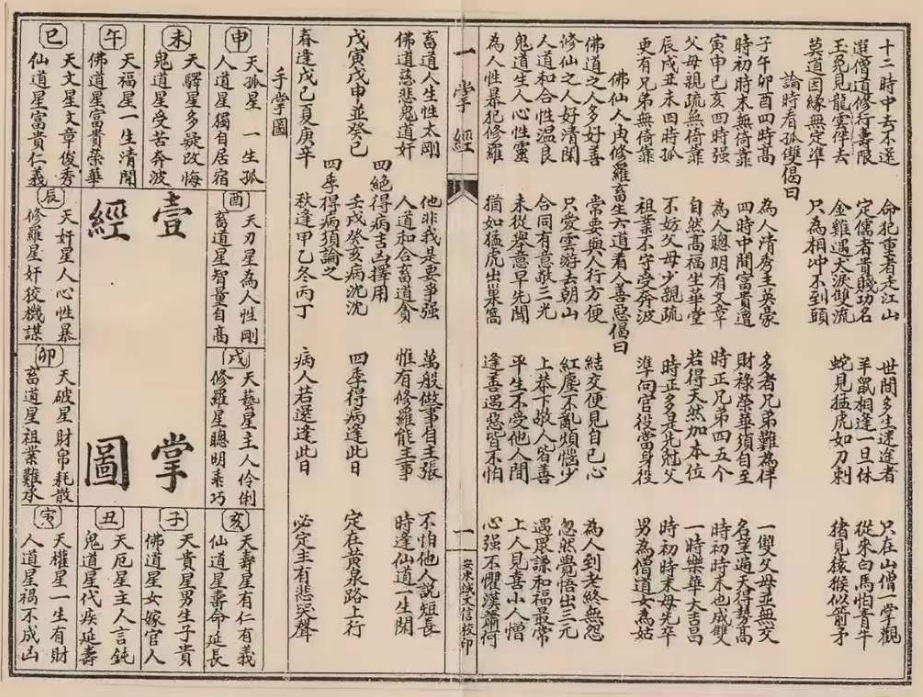 十二時中去不迭 命犯重者走江山 世間多生迷途者 只在山僧一掌觀
選僧道修行壽限 定儒者貴賤功名 羊鼠相逢一旦休 從來白馬怕青牛
玉兔見龍雲伴去 金雞遇犬淚雙流 蛇見猛虎如刀刺 猪見猿猴似箭矛
莫道因緣無定準 只為相冲不到頭
論時看孤雙偈曰
子午卯酉四時高 為人清秀主英豪 多者兄弟難為伴 一雙父母並無交
時初時末無倚靠 四時中間富貴遭 財祿榮華須自至 名呈遍天得勢高
寅申巳亥四時強 為人聰明有文章 時正兄弟四五个 時初時末也成雙
父母親疏無倚靠 自然高福生華堂 若得天然加本位 一時樂華大吉昌
辰戌丑未四時孤 不妨父母少親疏 時正多是先尅父 時初時末母先卒
更有兄弟無倚靠 祖業不守受奔波 準向官役當身役 男為僧道女為姑
佛仙人鬼修羅畜生六道看人善惡偈曰
佛道之人多好善 常要與人行方便 結交便見自己心 為人到老終無怨
修仙之人好清閑 只愛雲游去朝山 紅塵不亂煩惱少 忽然覺悟出三元
人道和合性温良 合同有意敬三光 上恭下敬人皆善 遇眾謙和福最常
鬼道生人心性靈 未從舉意早先聞 平生不受他人間 上人見喜小人憎
為人性暴犯修羅 猶如猛虎出巢窩 逢善遇惡皆不怕 心强不懼漢蕭何
一掌經 一 安東誠文信校印
畜道人生性太剛 他非我是要爭强 萬般做事自主張 不怕他人說短長
佛道慈悲鬼道奸 人道和合畜道貪 惟有修羅能主事 時逢仙道一生閑
四絕得病吉凶擇用
戊寅戊申並癸巳 壬戌癸亥病沈沈 四季得病逢此日 定在黃泉路上行
四季得病須論之
春逢戊己夏庚辛 秋逢甲乙冬丙丁 病人若還逢此日 必定主有悲哭聲
手掌圖
申
天孤星一生孤
人道星獨自居宿
未
天驛星多疑改悔
鬼道星受苦奔波
午
天福星一生清閑
佛道星富貴榮華
巳
天文星文章俊秀
仙道星富貴仁義
酉
天刃星為人性剛
畜道星智量自高
辰
天奸星人心性暴
修羅星奸狡機謀
壹掌經圖
戌
天藝星主人伶俐
修羅星聰明乖巧
卯
天破星財帛耗散
畜道星祖業難承
亥
天壽星有仁有義
仙道星壽命延長
子
天貴星男生子貴
佛道星女嫁官人
丑
天厄星主人言鈍
鬼道星代疾延壽
寅
天權星一生有財
人道星禍不成凶